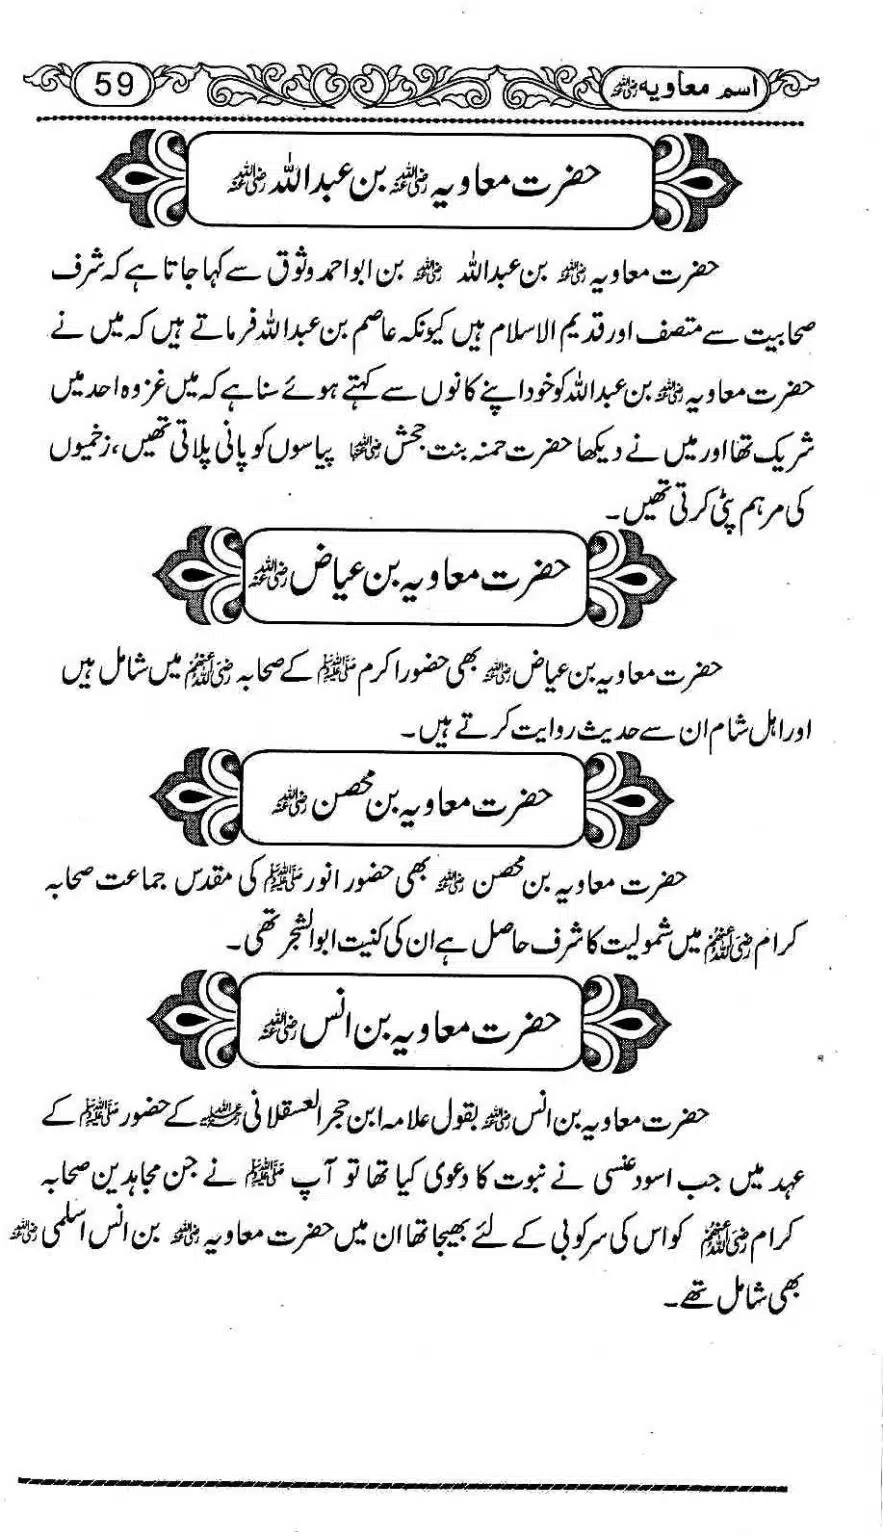 اسم معاویہ رضی اللہ عنہ
59
حضرت معاویہ رضی اللہ عنہ بن عبداللہ رضی اللہ عنہ
حضرت معاویہ رضی اللہ عنہ بن عبداللہ رضی اللہ عنہ بن ابو احمد وثوق سے کہا جاتا ہے کہ شرف
صحابیت سے متصف اور قدیم الاسلام ہیں کیونکہ عاصم بن عبداللہ فرماتے ہیں کہ میں نے
حضرت معاویہ رضی اللہ عنہ بن عبداللہ کو خود اپنے کانوں سے کہتے ہوئے سنا ہے کہ میں غزوہ احد میں
شریک تھا اور میں نے دیکھا حضرت حمنہ بنت جحش رضی اللہ عنہا پیاسوں کو پانی پلاتی تھیں، زخمیوں
کی مرہم پٹی کرتی تھیں۔
حضرت معاویہ بن عیاض رضی اللہ عنہ
حضرت معاویہ بن عیاض رضی اللہ عنہ بھی حضور اکرم ﷺ کے صحابہ رضی اللہ عنہم میں شامل ہیں
اور اہل شام ان سے حدیث روایت کرتے ہیں۔
حضرت معاویہ بن محصن رضی اللہ عنہ
حضرت معاویہ بن محصن رضی اللہ عنہ بھی حضور انور ﷺ کی مقدس جماعت صحابہ
کرام رضی اللہ عنہم میں شمولیت کا شرف حاصل ہے ان کی کنیت ابو الشجر تھی۔
حضرت معاویہ بن انس رضی اللہ عنہ
حضرت معاویہ بن انس رضی اللہ عنہ بقول علامہ ابن حجر العسقلانی رحمۃ اللہ علیہ کے حضور ﷺ کے
عہد میں جب اسود عنسی نے نبوت کا دعوی کیا تھا تو آپ ﷺ نے جن مجاہدین صحابہ
کرام رضی اللہ عنہم کو اس کی سرکوبی کے لئے بھیجا تھا ان میں حضرت معاویہ رضی اللہ عنہ بن انس اسلمی رضی اللہ عنہ
بھی شامل تھے۔